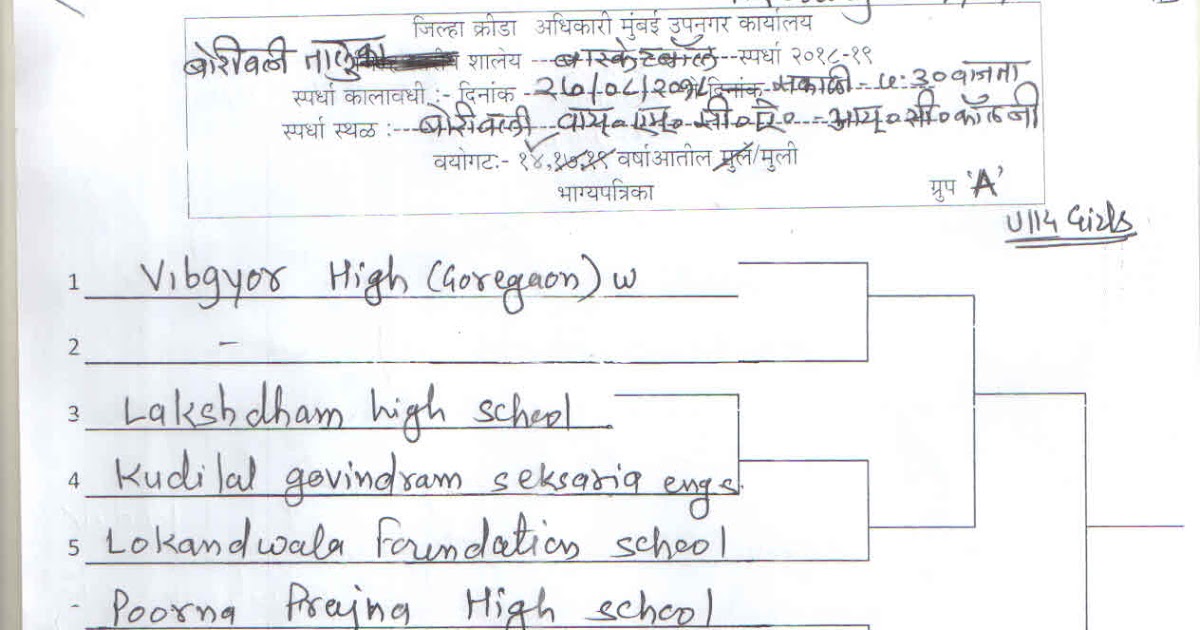 जिल्हा क्रीडा अधिकारी मुंबई उपनगर कार्यालय
बोरीवली तालुका शालेय ---बास्केटबॉल---स्पर्धा २०१८-१९
स्पर्धा कालावधी :- दिनांक -२७/०८/२०१८ सकाळी - ८:३० वाजता
स्पर्धा स्थळ :---बोरीवली वाय॰ एम॰ सी॰ ए॰ --- आय॰ सी॰ कॉलनी
वयोगटः- १४,१७,१९ वर्षाआतील मुले/मुली
भाग्यपत्रिका
ग्रुप 'A'
U/14 Girls
1 Vibgyor High (Goregaon) W
2 -
3 Lakshdham high school
4 Kudilal govindram seksaria engs.
5 Lokandwala Foundation school
- Poorna Prajna High school